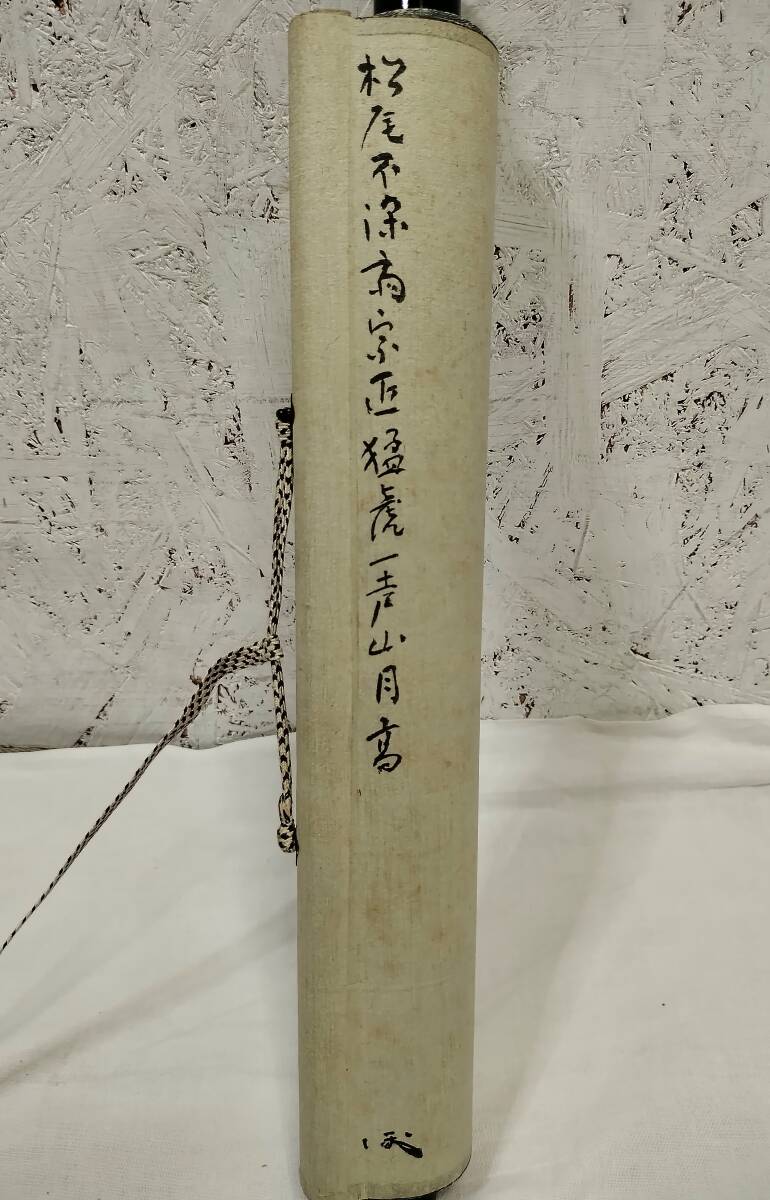 松尾不染斎宗匠猛虎一声山月高